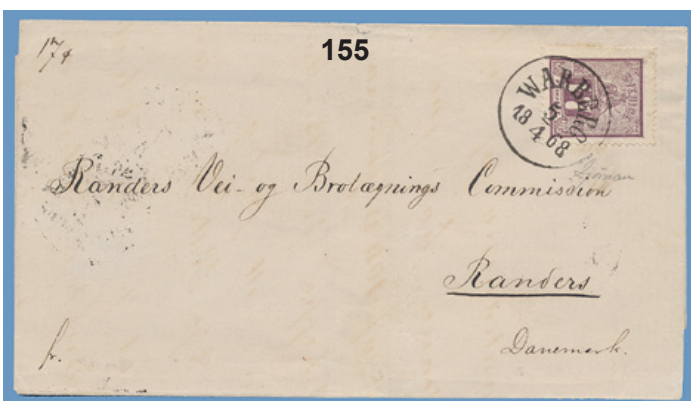 17/4
155
WARBERG
5
4
18 68
Randers Vei- og Brolægnings Commission
Randers
Danemark.
fr.